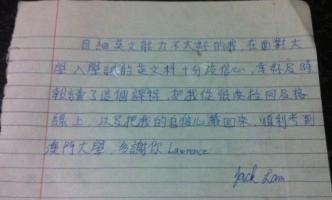 自細英文能力不太好的我，在面對大
學入學試的英文科十分沒信心，幸好及時
報讀了這個課程，把我從懸崖拾回及格
線上，以及把我的自信心帶回來，順利考到
澳門大學，多謝你 Lawrence
Jack Lam